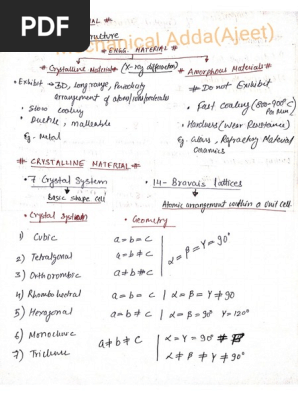 PDF
Mechanical Adda(Ajeet)
# ENGG. MATERIAL #
# Crystalline Material # (X-ray diffraction)
# Amorphous Material #
• Exhibit → 3D, long range, Periodicity
arrangement of atoms/ions/molecules
• Slow cooling
• Ductile, malleable
Eg. metal
# Do not Exhibit
• Fast Cooling (800-900°C
Per min)
• Hardness (Wear Resistance)
Eg: Glass, Refractory Material
Ceramics
# CRYSTALLINE MATERIAL #
• 7 Crystal System
Basic shape cell
• 14- Bravais lattices
Atomic arrangement within a Unit Cell
• Crystal System
• Geometry
1) Cubic a = b = c
2) Tetragonal a = b ≠ c
3) Orthorombic a ≠ b ≠ c
α = β = γ = 90°
4) Rhombohedral a = b = c | α = β = γ ≠ 90
5) Hexagonal a = b ≠ c | α = β = 90° γ = 120°
6) Monoclinic
7) Triclinic
a ≠ b ≠ c
α = γ = 90° ≠ β
α ≠ β ≠ γ ≠ 90°